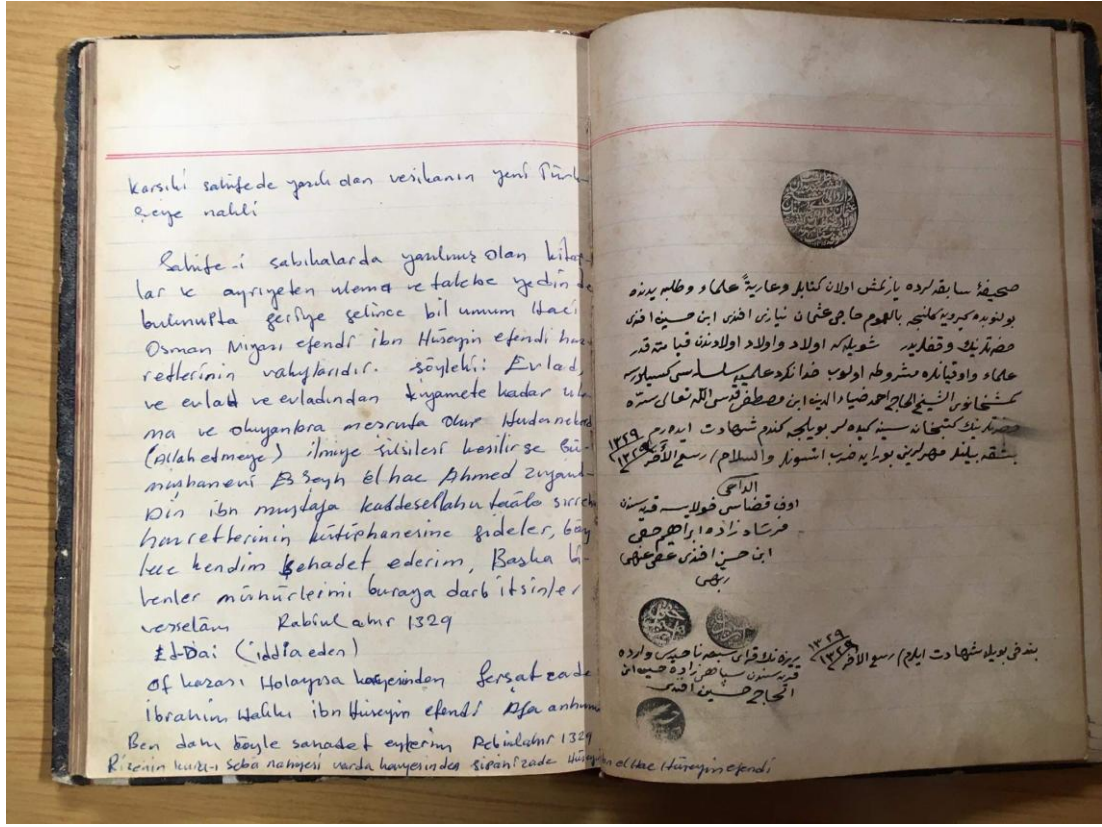 Karşıki sahifede yazılı olan vesikanın yeni Türk-
çeye nakli
Sahife-i sabıkalarda yazılmış olan kitap-
lar ve ayriyeten ulema ve talebe yedinde
bulunupta geriye gelince bil umum Haci
Osman Niyazi efendi ibn Hüseyin efendi haz-
retlerinin vakıflarıdır. şöyleki: Evlad,
ve evlad ve evladından kıyamete kadar ule-
ma ve okuyanlara meşruta olur Hudanekerd
(Allah etmeye) ilmiye silsilesi kesilirse Gü-
müşhanevi Es Şeyh el hac Ahmed ziyaud-
Din ibn mustafa kaddesellahu taâlâ sırreh
hazretlerinin kütüphanesine gideler, böy
lece kendim şehadet ederim, Başka bi-
lenler mühürlerini buraya darb itsinler
vesselâm Rabiul ahır 1329
Ed-Dai (iddia eden)
Of kazası Holayısa karyesinden Ferşat zade
ibrahim Hakkı ibn Hüseyin efendi Afa anhuma
Ben dahi böyle şahadet eylerim Rebiulahır 1329
Rizenin kura-ı seba nahiyesi varda karyesinden sipahizade Hüseyin ibn el Hac Hüseyin efendi
صحیفهٔ سابقه‌لرده یازلمش اولان کتابلر و عاریةً علماء و طلبه یدنده
بالعموم حاجی عثمان نیازی افندی ابن حسین افندی
حضرتلرینك وقفلریدر شویله‌که اولاد و اولاد اولادندن قیامته قدر
علماء مشروطه اولوب خدا نکرده علمیه سلسله‌سی کسیلورسه
کمشخانوی الشیخ الحاج احمد ضیاء الدین ابن مصطفی قدس الله تعالی سره
حضرتلرینك کتبخانه‌سینه کیده‌لر بویلجه کندم شهادت ایده‌رم ۱۳۲۹
بشقه بیلنلر مهرلرینی بورایه ضرب ایتسونلر والسلام / ربیع الآخر ۱۳۲۹
الداعی
اوف قضاسی قریه‌سندن
فرشاد زاده ابراهیم حقی
ابن حسن افندی عفی عنهما
بنده‌خی بویله شهادت ایلرم / ربیع الاخر ۱۳۲۹
ریزه‌نك قرای سبعه ناحیه‌سی وارده
قریه‌سندن سپاهی زاده حسین ابن
الحاج حسین افندی